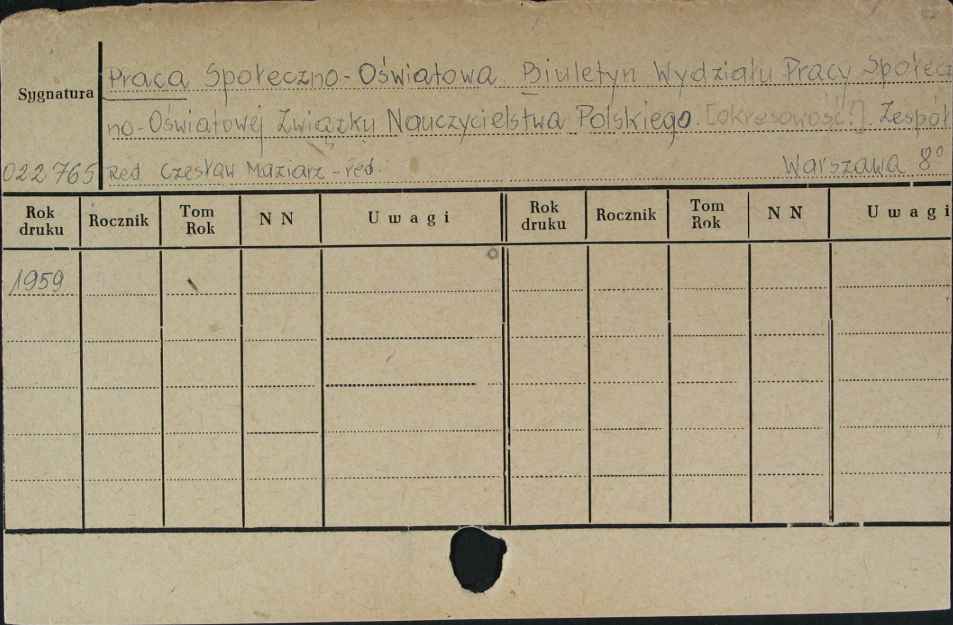 Sygnatura
Praca Społeczno-Oświatowa. Biuletyn Wydziału Pracy Społecz
no-Oświatowej Związku Nauczycielstwa Polskiego. [okresowość?]. Zespół
022765 Red Czesław Maziarz - red. Warszawa 8°
Rok druku Rocznik Tom Rok N N Uwagi Rok druku Rocznik Tom Rok N N Uwagi
1959